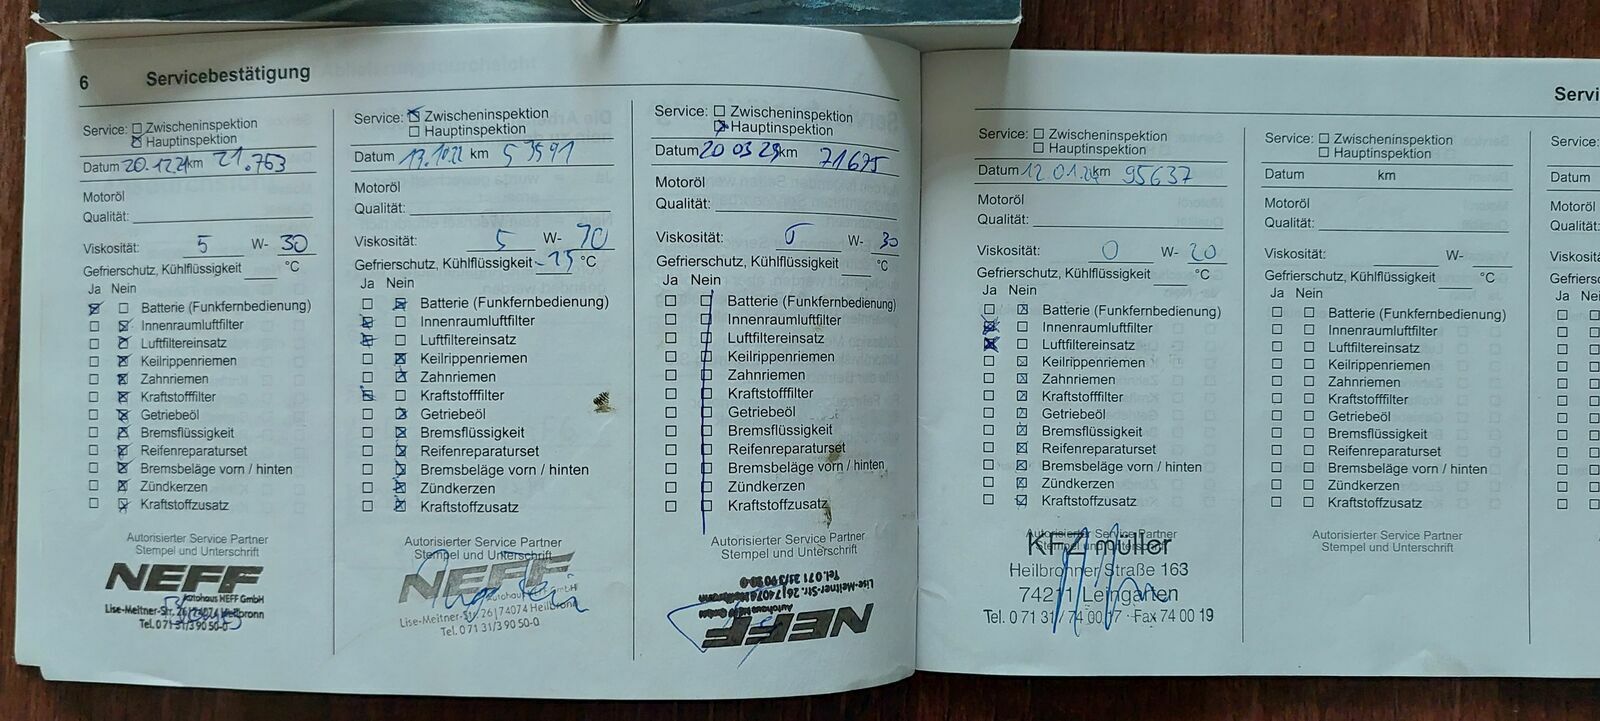 6 Servicebestätigung
Service: Zwischeninspektion
Hauptinspektion
Datum 20.12.21 km 21.763
Motoröl
Qualität:
Viskosität: 5 W- 30
Gefrierschutz, Kühlflüssigkeit °C
Ja Nein
Batterie (Funkfernbedienung)
Innenraumluftfilter
Luftfiltereinsatz
Keilrippenriemen
Zahnriemen
Kraftstofffilter
Getriebeöl
Bremsflüssigkeit
Reifenreparaturset
Bremsbeläge vorn / hinten
Zündkerzen
Kraftstoffzusatz
Autorisierter Service Partner
Stempel und Unterschrift
NEFF
Autohaus NEFF GmbH
Lise-Meitner-Str. 26 | 74074 Heilbronn
Tel. 0 71 31/3 90 50-0
Service: Zwischeninspektion
Hauptinspektion
Datum km
Motoröl
Qualität:
Viskosität: 5 W-
Gefrierschutz, Kühlflüssigkeit °C
Ja Nein
Batterie (Funkfernbedienung)
Innenraumluftfilter
Luftfiltereinsatz
Keilrippenriemen
Zahnriemen
Kraftstofffilter
Getriebeöl
Bremsflüssigkeit
Reifenreparaturset
Bremsbeläge vorn / hinten
Zündkerzen
Kraftstoffzusatz
Autorisierter Service Partner
Stempel und Unterschrift
NEFF
Autohaus NEFF GmbH
Lise-Meitner-Str. 26 | 74074 Heilbronn
Tel. 0 71 31/3 90 50-0
Service: Zwischeninspektion
Hauptinspektion
Datum 20 03 km
Motoröl
Qualität:
Viskosität: W- 30
Gefrierschutz, Kühlflüssigkeit °C
Ja Nein
Batterie (Funkfernbedienung)
Innenraumluftfilter
Luftfiltereinsatz
Keilrippenriemen
Zahnriemen
Kraftstofffilter
Getriebeöl
Bremsflüssigkeit
Reifenreparaturset
Bremsbeläge vorn / hinten
Zündkerzen
Kraftstoffzusatz
Autorisierter Service Partner
Stempel und Unterschrift
NEFF
Autohaus NEFF GmbH
Lise-Meitner-Str. 26 | 74074 Heilbronn
Tel. 0 71 31/3 90 50-0
Servi
Service: Zwischeninspektion
Hauptinspektion
Datum 12.01. km 95637
Motoröl
Qualität:
Viskosität: 0 W- 20
Gefrierschutz, Kühlflüssigkeit °C
Ja Nein
Batterie (Funkfernbedienung)
Innenraumluftfilter
Luftfiltereinsatz
Keilrippenriemen
Zahnriemen
Kraftstofffilter
Getriebeöl
Bremsflüssigkeit
Reifenreparaturset
Bremsbeläge vorn / hinten
Zündkerzen
Kraftstoffzusatz
Autorisierter Service Partner
Stempel und Unterschrift
KFZ müller
Heilbronner Straße 163
74211 Leingarten
Tel. 0 71 31 / 74 00 17 · Fax 74 00 19
Service: Zwischeninspektion
Hauptinspektion
Datum km
Motoröl
Qualität:
Viskosität: W-
Gefrierschutz, Kühlflüssigkeit °C
Ja Nein
Batterie (Funkfernbedienung)
Innenraumluftfilter
Luftfiltereinsatz
Keilrippenriemen
Zahnriemen
Kraftstofffilter
Getriebeöl
Bremsflüssigkeit
Reifenreparaturset
Bremsbeläge vorn / hinten
Zündkerzen
Kraftstoffzusatz
Autorisierter Service Partner
Stempel und Unterschrift
Service:
Datum
Motoröl
Qualität:
Viskosität:
Gefriersc
Ja Nei